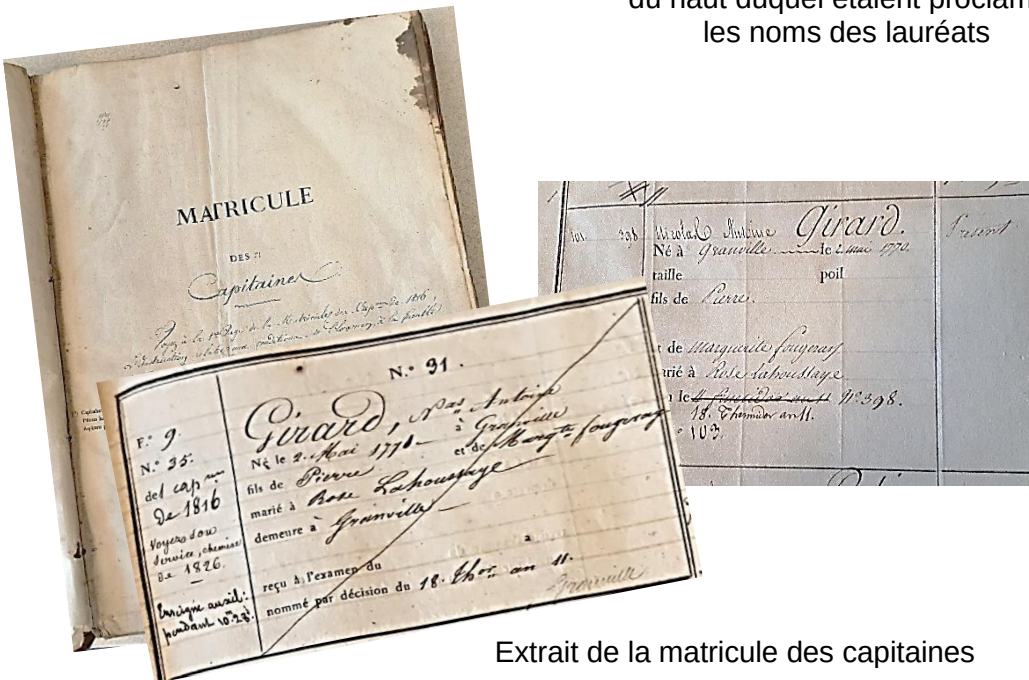 du haut duquel étaient proclam
les noms des lauréats
MATRICULE
DES
Capitaines
Voyez à la
N.° 91.
F.° 9.
N.° 35.
de 1816
Voyez son
service, chemise
de 1826.
Enseigne auxil:
pendant 10.m 23j
Girard, Nas Antoine
Né le 2. Mai 1770 - à Granville
fils de Pierre et de Margte fougeray
marié à Rose Lahoussaye
demeure à Granville
à
reçu à l'examen du
nommé par décision du 18. thor an 11.
Granville
101 398
Nicolas Antoine Girard.
Né à Granville le 2 mai 1770.
taille poil
fils de Pierre.
t de Marguerite fougeray
arié à Rose Lahoussaye
n le N.° 398.
18. Thermidor an 11.
° 103.
Présent
Extrait de la matricule des capitaines